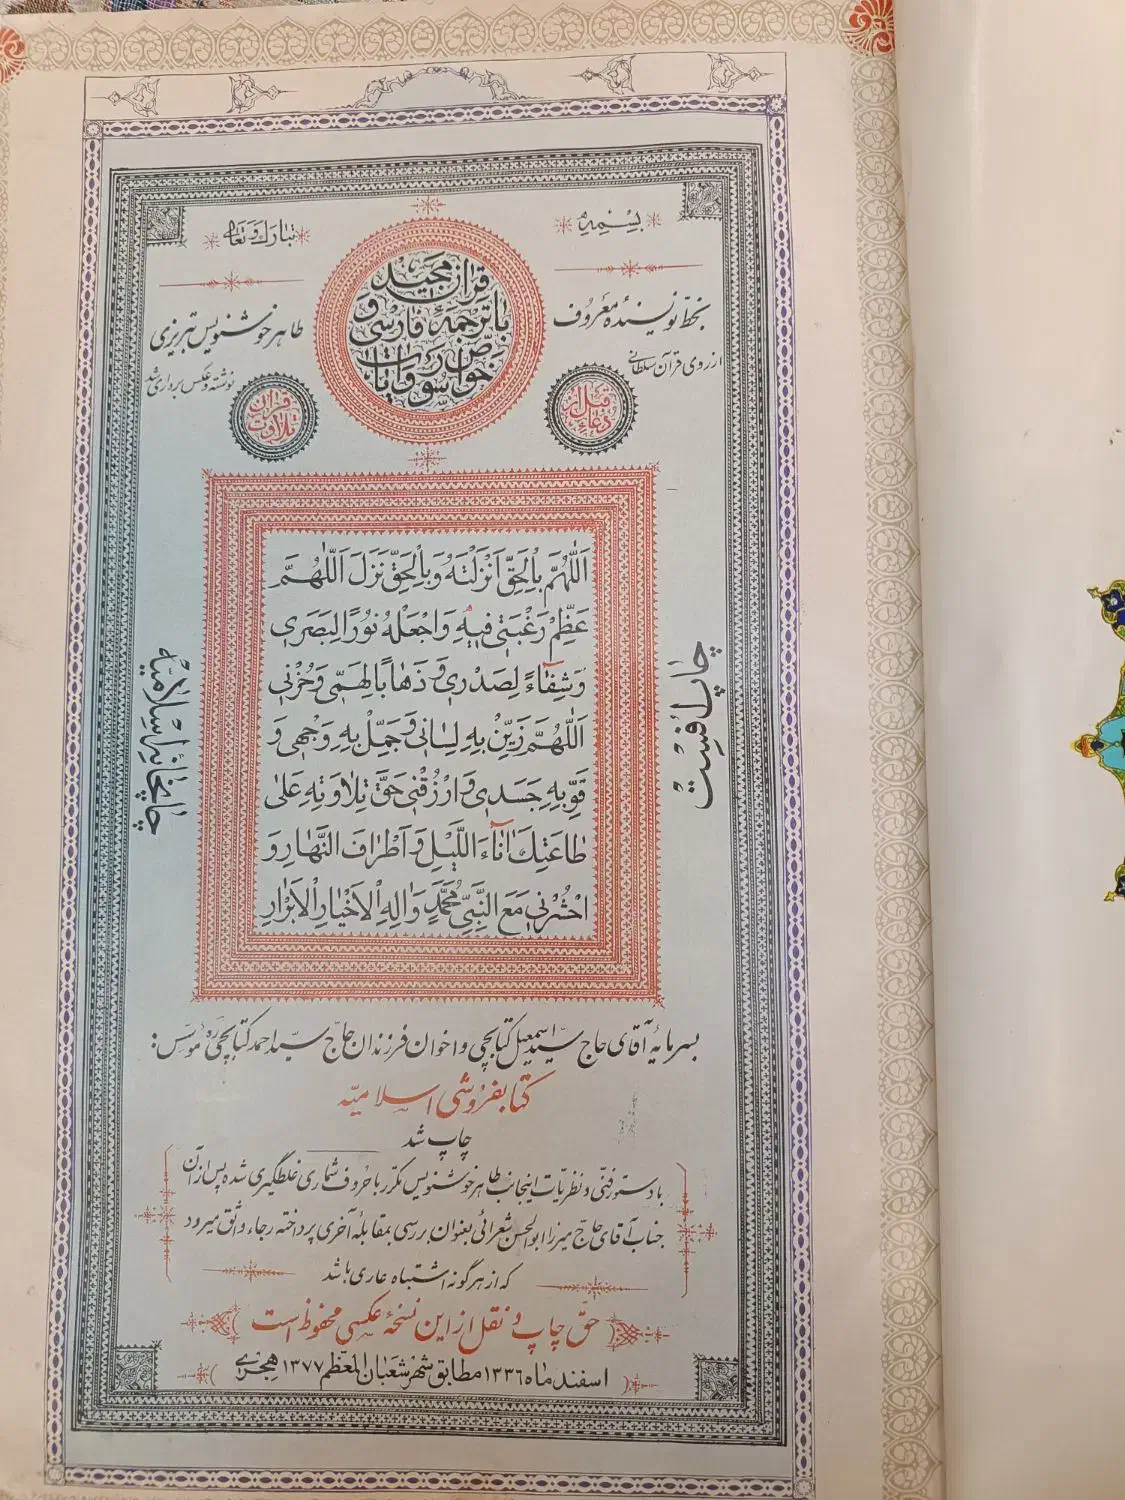 بِسْمِهِ
تَبارَكَ وَتَعالى
قرآن مجید
با ترجمهٔ فارسی و
خواص سور و آیات
بخط نویسندهٔ معروف
طاهر خوشنویس تبریزی
از روی قرآن سلطانی
نوشته و عکس برداری شد
دُعاء قبل از
تلاوت قرآن
اَللّٰهُمَّ بِالْحَقِّ اَنْزَلْتَهُ وَبِالْحَقِّ نَزَلَ اَللّٰهُمَّ
عَظِّمْ رَغْبَتی فیهِ وَاجْعَلْهُ نُورًا لِبَصَری
وَشِفٰاءً لِصَدْری وَذَهٰابًا لِهَمّی وَحُزْنی
اَللّٰهُمَّ زَیِّنْ بِهِ لِسٰانی وَجَمِّلْ بِهِ وَجْهی وَ
قَوِّ بِهِ جَسَدی وَارْزُقْنی حَقَّ تِلٰاوَتِهِ عَلیٰ
طٰاعَتِكَ اٰنٰاءَ اللَّیْلِ وَاَطْرٰافَ النَّهٰارِ وَ
احْشُرْنی مَعَ النَّبِیِّ مُحَمَّدٍ وَاٰلِهِ الْاَخْیٰارِ الْاَبْرٰارِ
چاپ افست
چاپخانهٔ اسلامیه
بسرمایه آقای حاج سیّد اسمعیل کتابچی و اخوان فرزندان حاج سیّد احمد کتابچی مؤسس:
کتابفروشی اسلامیّه
چاپ شد
با دستور فنّی و نظریّات اینجانب طاهر خوشنویس مکرّر با حروف شماری غلطگیری شده پس از آن
جناب آقای حاج میرزا ابوالحسن شعرانی بعنوان بررسی بمقابلهٔ آخری پرداخته رجاء واثق میرود
که از هرگونه اشتباه عاری باشد
حقّ چاپ و نقل از این نسخهٔ عکسی محفوظ است
اسفند ماه ۱۳۳۶ مطابق شهر شعبان المعظم ۱۳۷۷ هجری